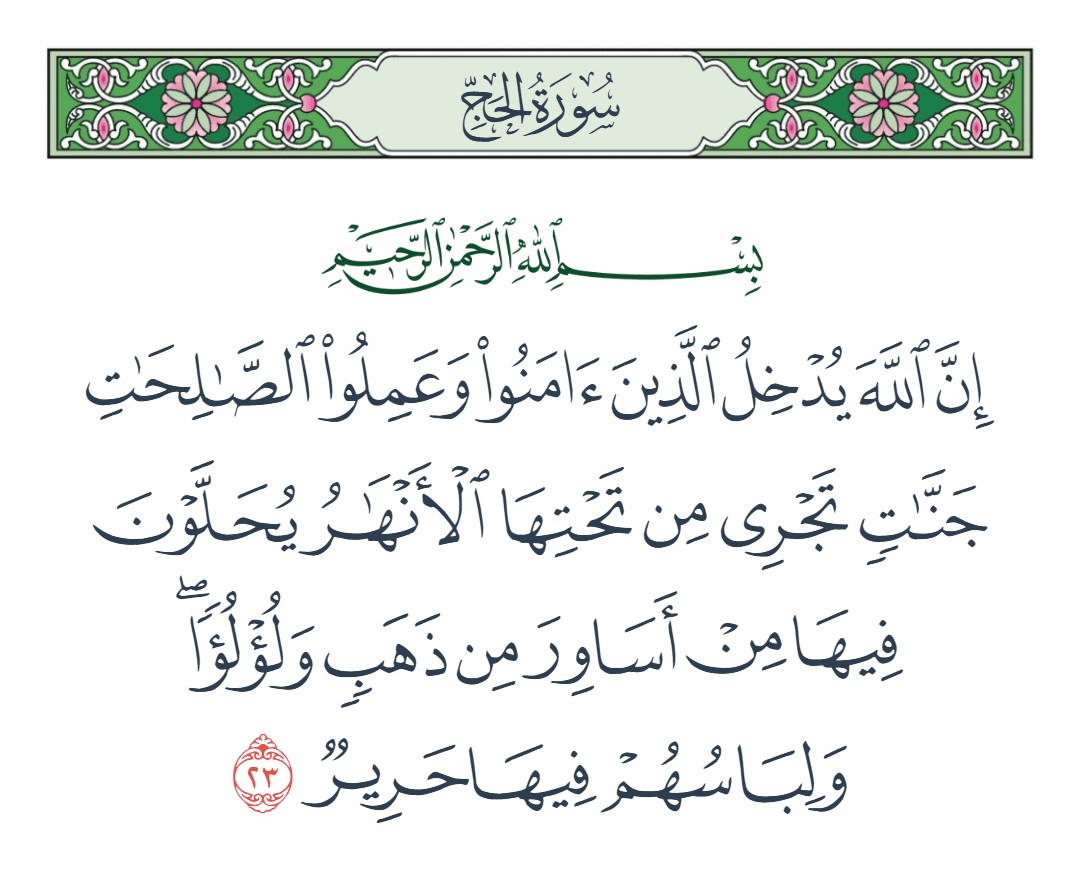 سُورَةُ الحَجِّ
بِسْمِ ٱللَّهِ ٱلرَّحْمَٰنِ ٱلرَّحِيمِ
إِنَّ ٱللَّهَ يُدْخِلُ ٱلَّذِينَ ءَامَنُوا۟ وَعَمِلُوا۟ ٱلصَّـٰلِحَـٰتِ
جَنَّـٰتٍ تَجْرِى مِن تَحْتِهَا ٱلْأَنْهَـٰرُ يُحَلَّوْنَ
فِيهَا مِنْ أَسَاوِرَ مِن ذَهَبٍ وَلُؤْلُؤًا ۖ
وَلِبَاسُهُمْ فِيهَا حَرِيرٌ ٢٣